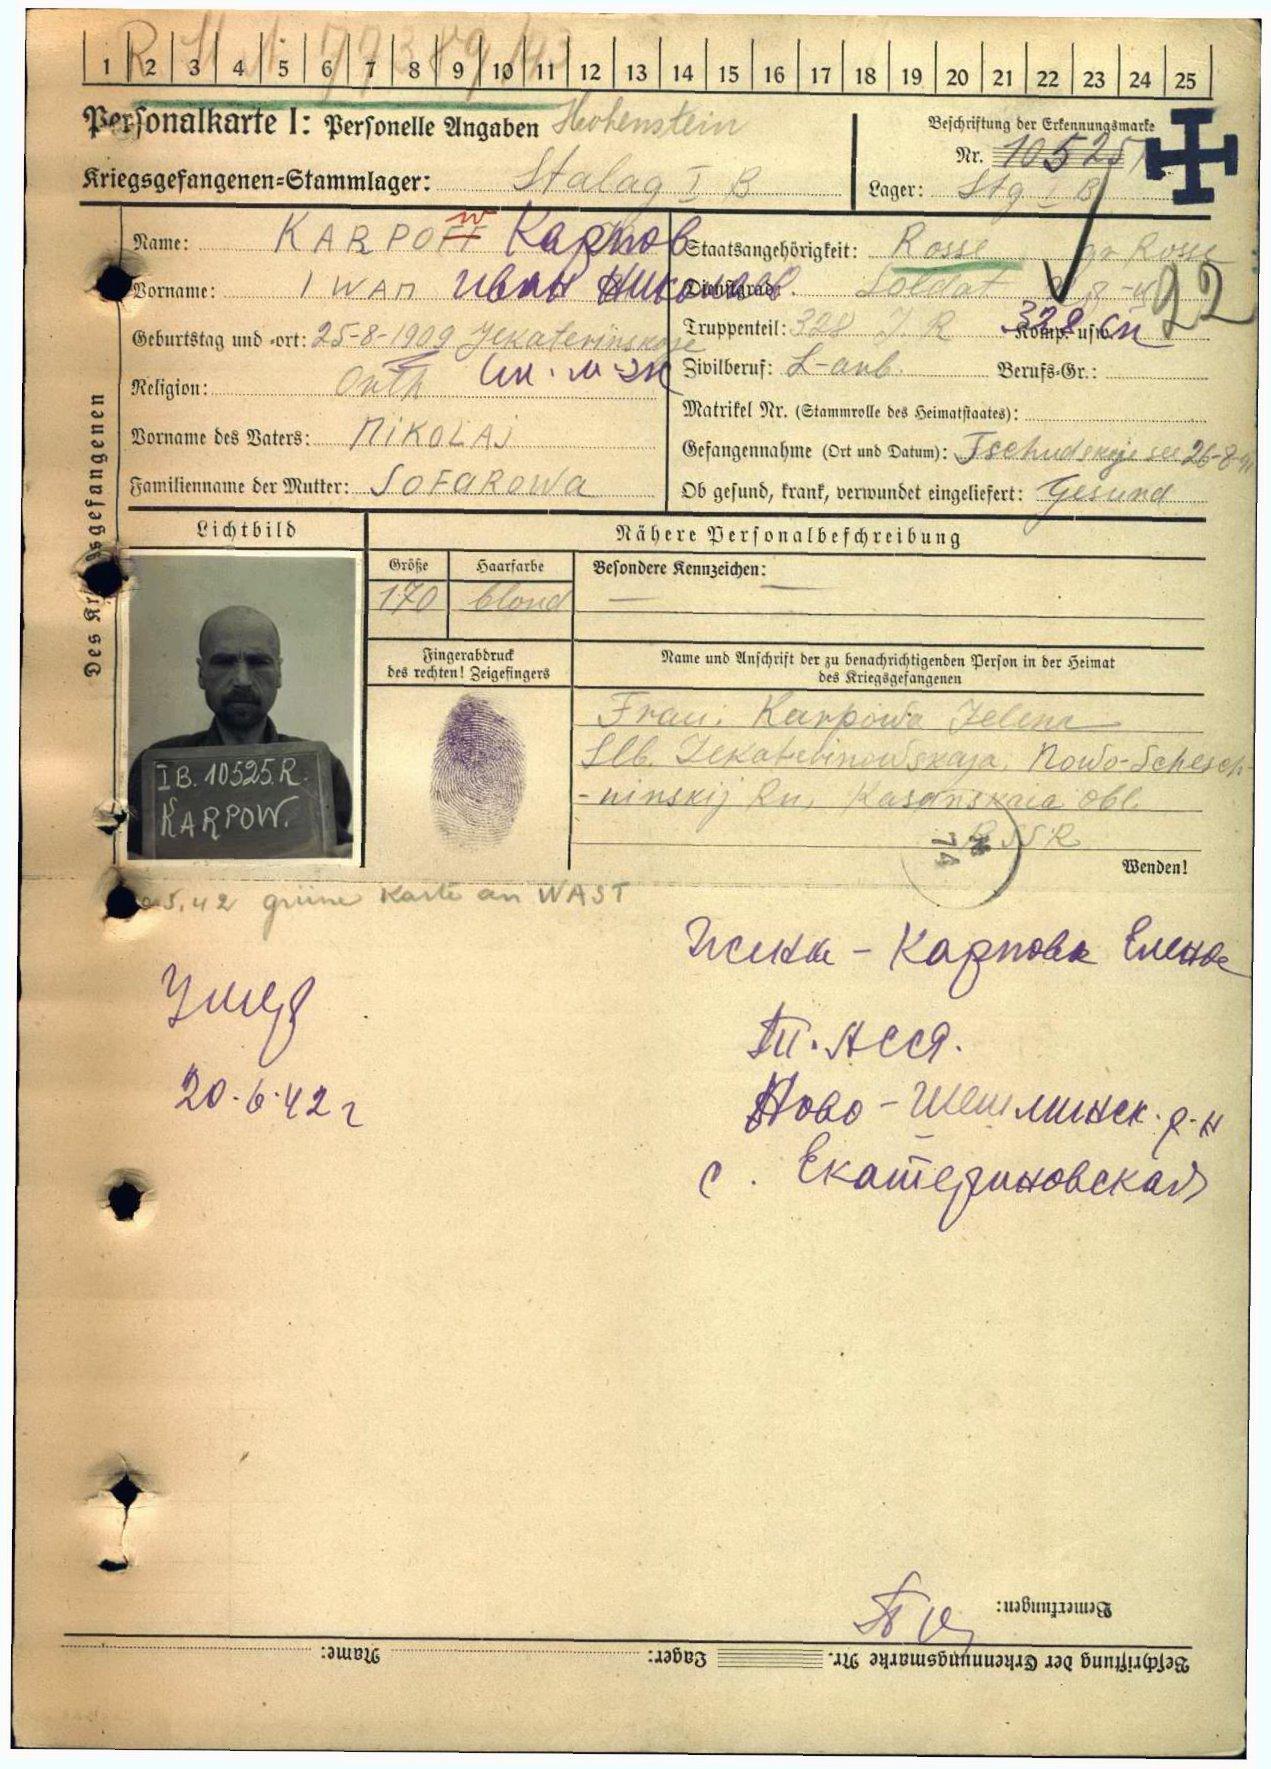 1 2 3 4 5 6 7 8 9 10 11 12 13 14 15 16 17 18 19 20 21 22 23 24 25
Personalkarte I: Personelle Angaben Hohenstein
Beschriftung der Erkennungsmarke
Nr. 10525
Kriegsgefangenen=Stammlager: Stalag I B
Lager: Stg I B
Des Kriegsgefangenen
Name: KARPOFF w Карпов
Vorname: IWAN Иван
Geburtstag und =ort: 25-8-1909 Jekaterinskoje
Religion: Orth
Vorname des Vaters: NIKOLAJ
Familienname der Mutter: SOFAROWA
Staatsangehörigkeit: Rosse
Dienstgrad: Soldat
92
Truppenteil: 328 J. R Komp. usw. 328 сп
Zivilberuf: L-arb. Berufs=Gr.:
Matrikel Nr. (Stammrolle des Heimatstaates):
Gefangennahme (Ort und Datum): Tschudskoje see 26-8-41
Ob gesund, krank, verwundet eingeliefert: Gesund
Lichtbild
Nähere Personalbeschreibung
Größe Haarfarbe Besondere Kennzeichen: —
170 blond —
I B. 10525. R.
KARPOW.
Fingerabdruck
des rechten! Zeigefingers
Name und Anschrift der zu benachrichtigenden Person in der Heimat
des Kriegsgefangenen
Frau: Karpowa Jelena
Slb. Jekaterinowskaja, Nowo-Schesch-
-ninskij Rn, Kasanskaia obl.
RSSR
74
Wenden!
5.42 grüne Karte an WAST
Жена - Карпова Елена
Т. АССР.
Ново-Шешминск. р-н
с. Екатериновская
Умер
20.6.42 г
Bemerkungen:
Beschriftung der Erkennungsmarke Nr. Lager: Name: